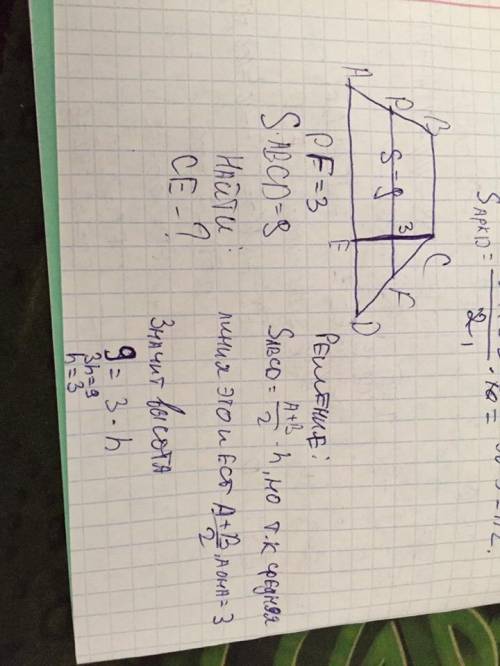 S APKD =
2
B
P
A
S = 9
3
C
F
E
D
PF = 3
S ABCD = 9
НАЙТИ:
CE - ?
РЕШЕНИЕ:
S ABCD = A+B/2 · h, но т.к средняя
линия это и есть A+B/2, а она = 3
Значит высота
9 = 3 · h
3h = 9
h = 3